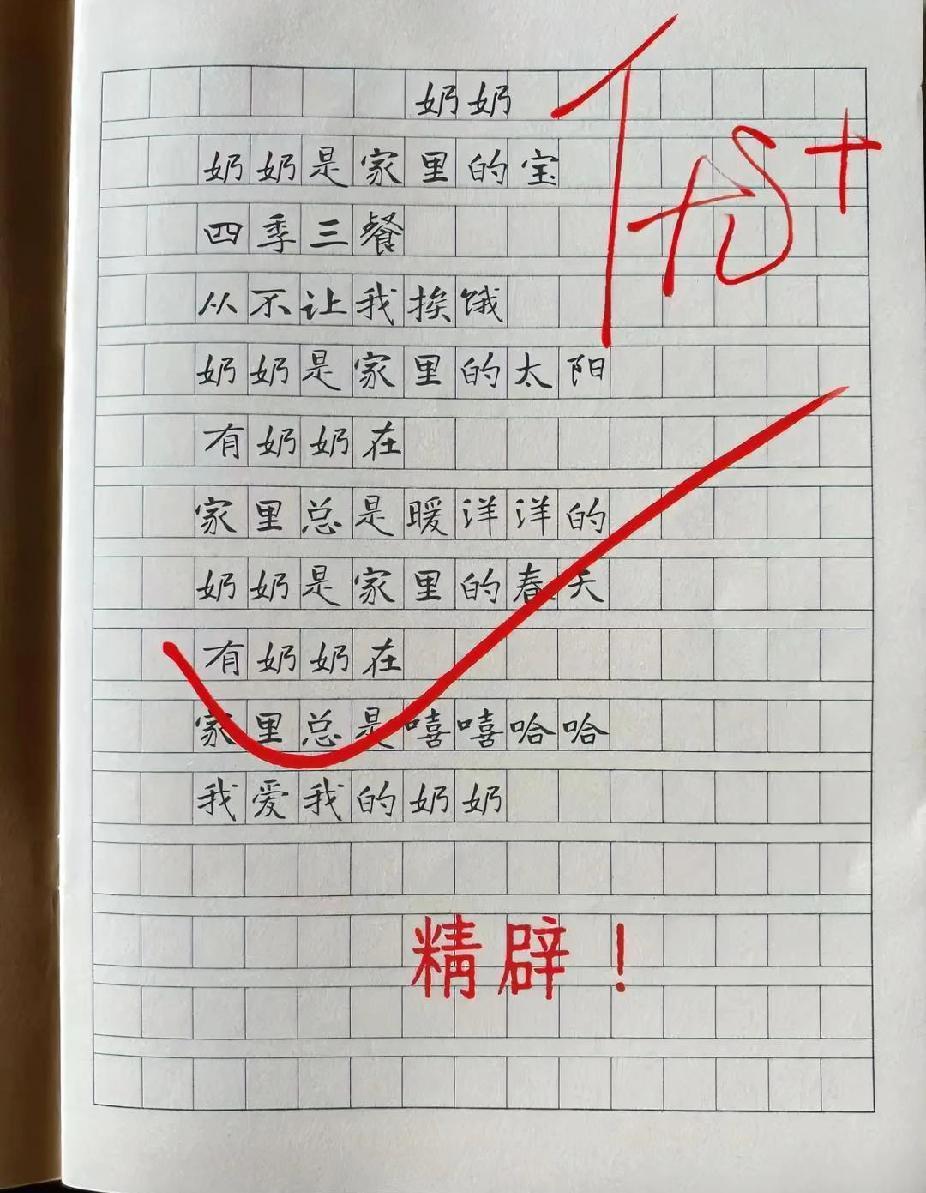 奶奶
奶奶是家里的宝
四季三餐
从不让我挨饿
奶奶是家里的太阳
有奶奶在
家里总是暖洋洋的
奶奶是家里的春天
有奶奶在
家里总是嘻嘻哈哈
我爱我的奶奶
精辟！